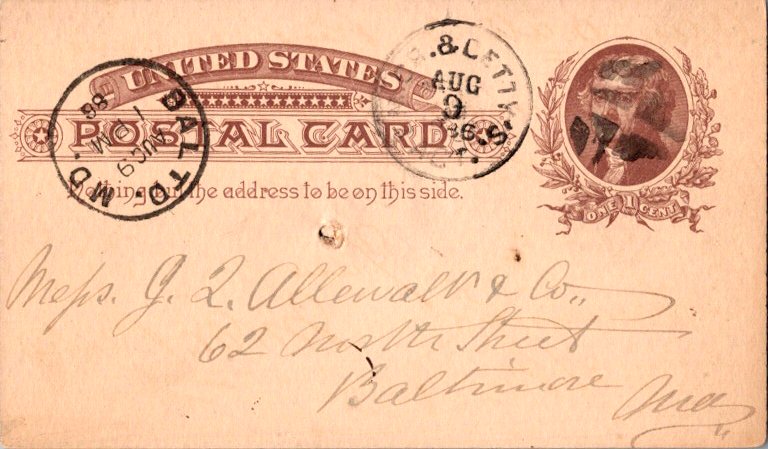 UNITED STATES
POSTAL CARD
Nothing but the address to be on this side.
BALTO. MD.
AUG 9
1 PM
86
& GETTY
AUG
9
86
ONE 1 CENT
Mess. J. Q. Allewalt & Co.,
62 North Street
Baltimore Md